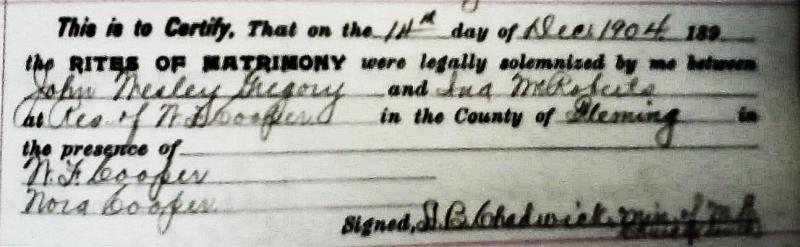 This is to Certify, That on the 14th day of Dec. 1904 189
the RITES OF MATRIMONY were legally solemnized by me between
John Wesley Gregory and Ina McRoberts
at Res. of W. F. Cooper in the County of Fleming in
the presence of
W. F. Cooper
Nora Cooper
Signed, Chadwick, Min. of M. E.